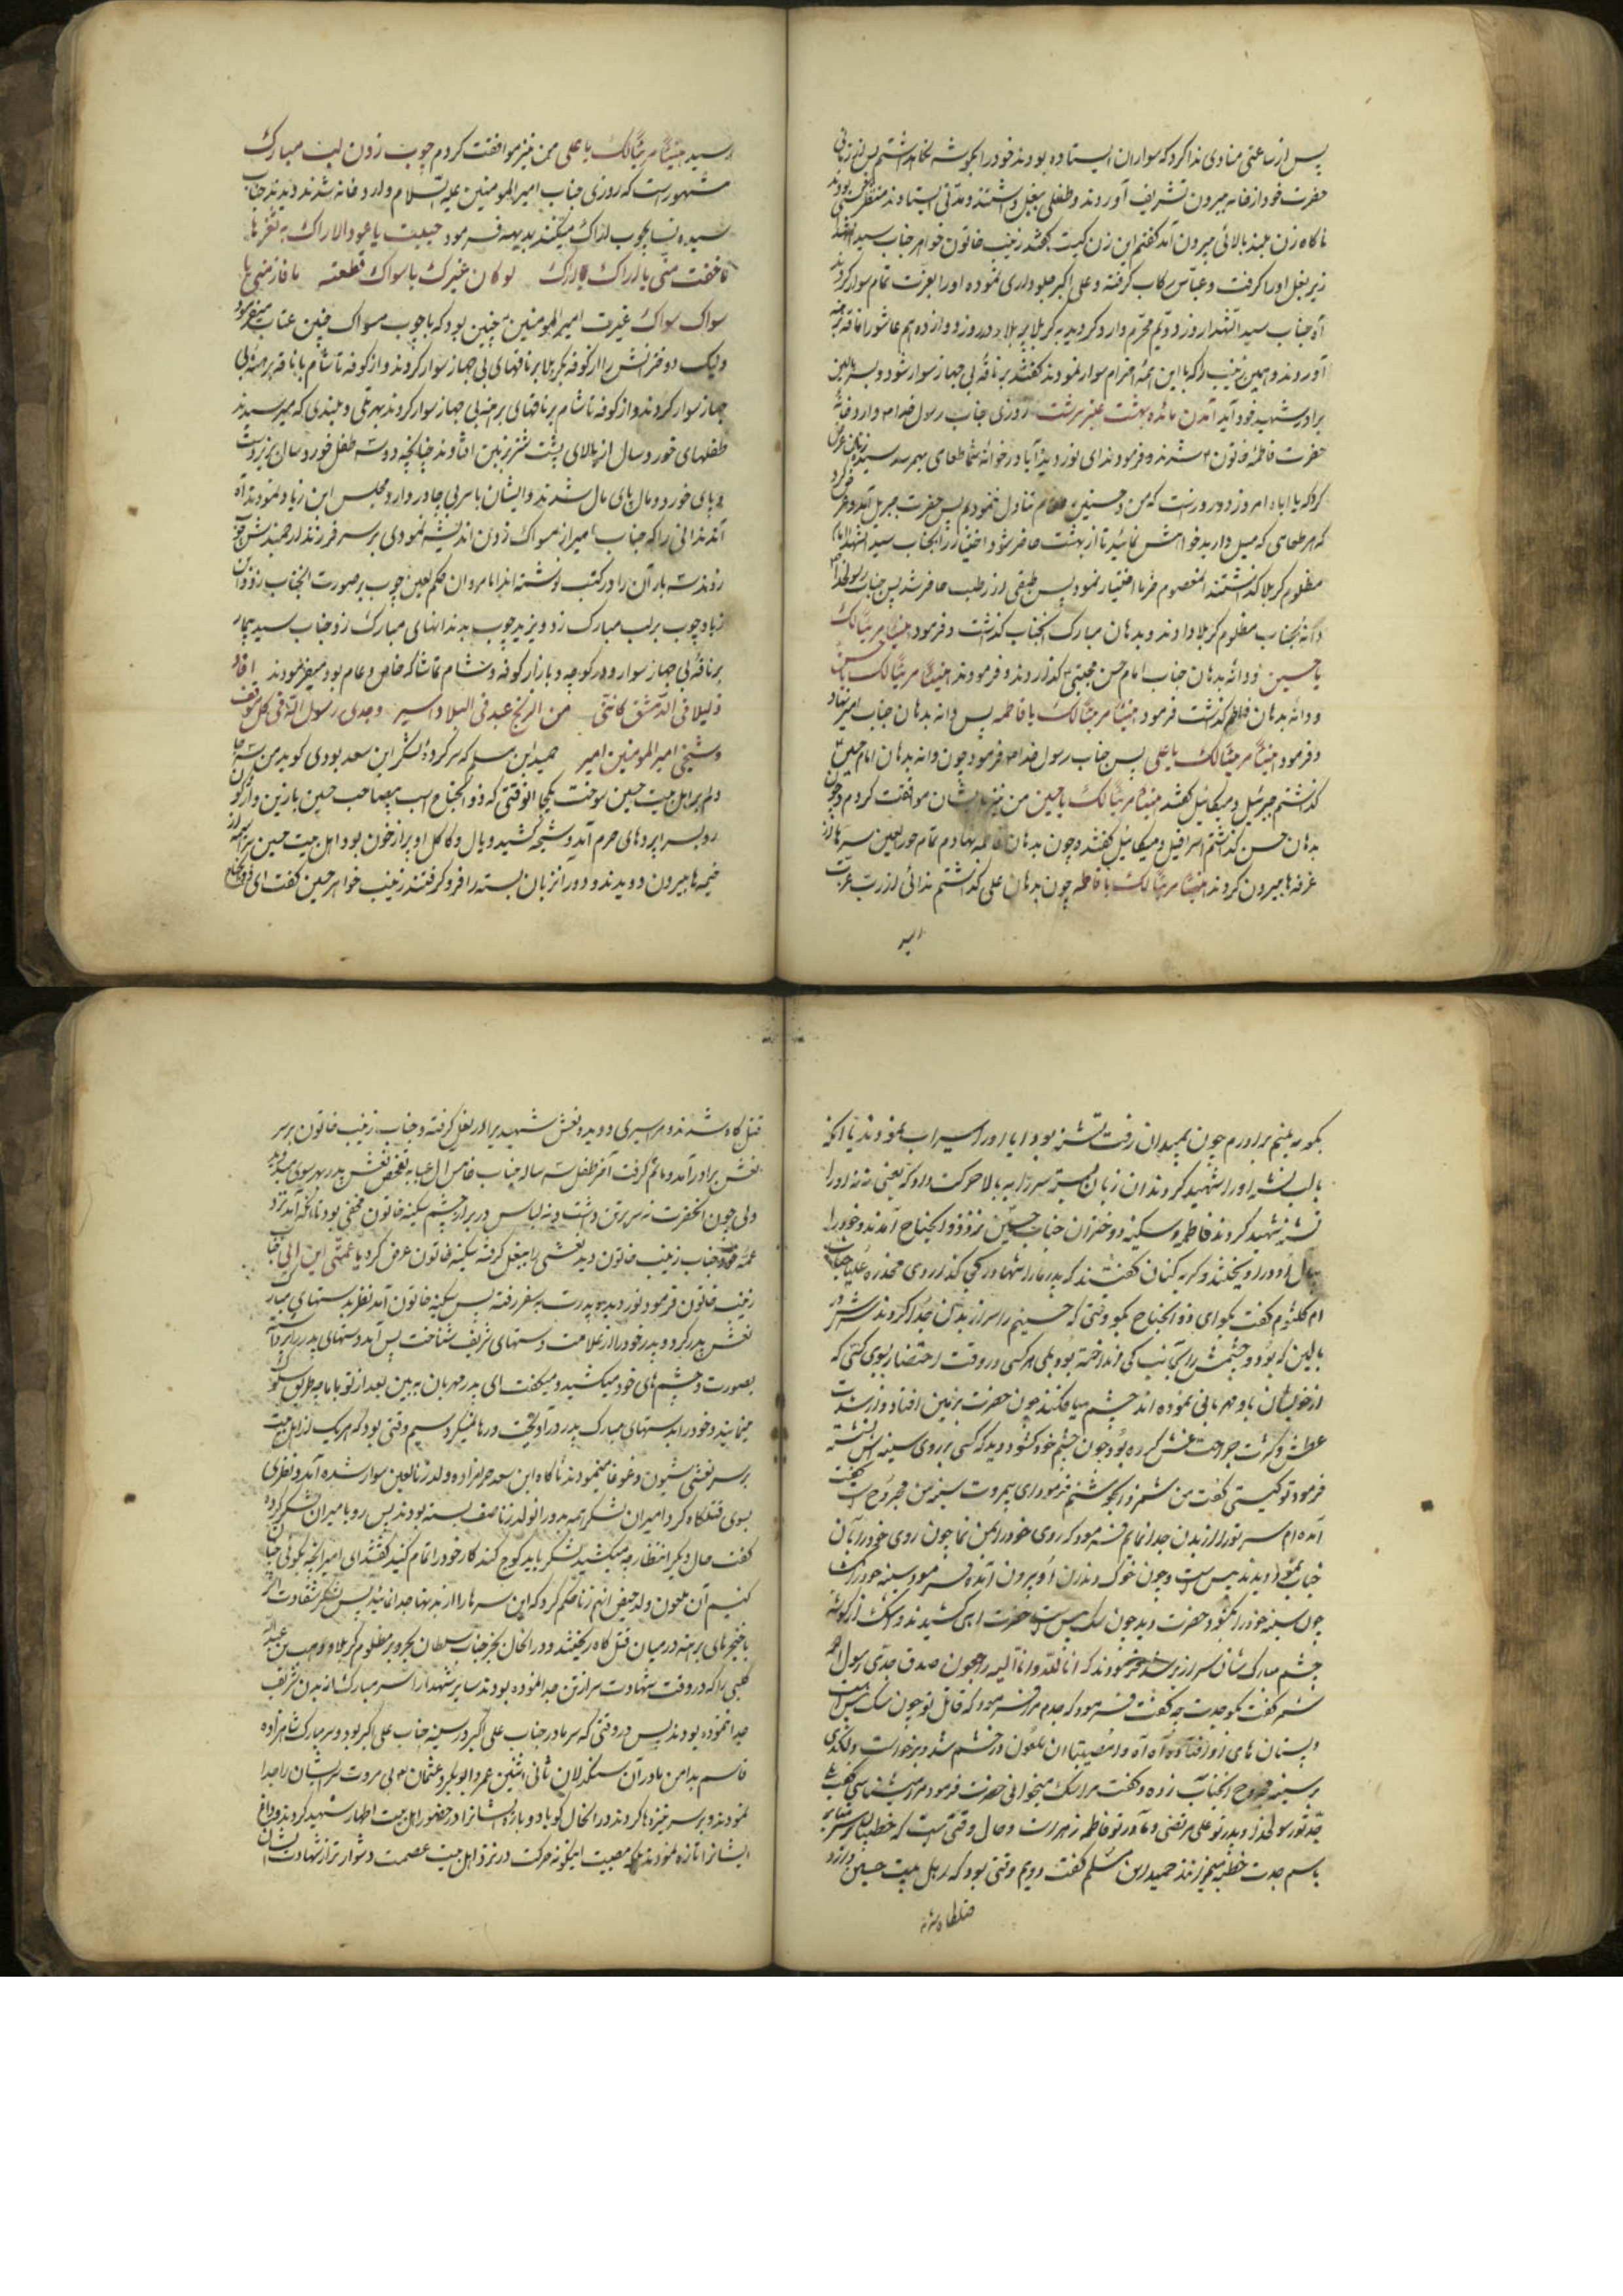 پس از ساعتی منادی ندا کرد که سواران ایستاده بودند خود را بگوشه نگاه داشتم پس از زمانی
حضرت خود از خانه بیرون تشریف آوردند و طفلی ببغل داشتند و مدتی ایستادند منتظر کسی بودند
ناگاه زن بلند بالائی بیرون آمد گفتم این زن کیست گفتند زینب خاتون خواهر جناب سید الشهدا
زیر بغل او را گرفت و عباس رکاب گرفته و علی اکبر جلوداری نموده او را بعزت تمام سوار کردند
آه جناب سید الشهدا روز دویم محرم وارد گردید به کربلا در روز دوازدهم عاشورا ناقه برهنه
آوردند و همین زینب را که با این همه احترام سوار نمودند گفتند بر ناقه بی جهاز سوار شود و بسر بالین
برادر شهید خود آید آمدن مائده بهشت عنبر سرشت روزی جناب رسول خدا ص وارد خانه
حضرت فاطمه خاتون شدند و فرمودند ای نور دیده آیا در خوانه شما طعامی بهم رسد سیده زنان عرض
کرد که یا اباه امروز دو روز است که من و حسنین طعام تناول ننمودیم پس حضرت جبریل آمد و عرض کرد
که هر طعامی که میل دارید خواهش نمائید تا از بهشت حاضر شود اختیار را بجناب سید الشهدا امام
مظلوم کربلا گذاشتند المعصوم خرما اختیار نمود پس طبقی از رطب حاضر شد پس جناب رسولخدا
دانه بجناب مظلوم کربلا دادند و بدهان مبارک آنجناب گذشت و فرمود هنیئا مریئا لک
یا حسین و دانه بدهان جناب امام حسن مجتبی گذاردند و فرمودند هنیئا مریئا لک یا حسن
و دانه بدهان فاطمه گذشت فرمود هنیئا مریئا لک یا فاطمه پس دانه بدهان جناب امیر نهاد
و فرمود هنیئا مریئا لک یا علی پس جناب رسول خدا ص فرمود چون دانه بدهان امام حسین
گذشتم جبرئیل و میکائیل گفتند هنیئا مریئا لک یا حسین من نیز بایشان موافقت کردم و چون
بدهان حسن گذاشتم اسرافیل و میکائیل گفتند و چون بدهان فاطمه نهادم تمام حور العین سرها از
غرفه ها بیرون کردند هنیئا مریئا لک یا فاطمه چون بدهان علی گذاشتم ندائی از رب عزت
رسید
رسید هنیئا مریئا لک یا علی من نیز موافقت کردم چوب زدن لب مبارک
مشهور است که روزی جناب امیر المومنین علیه السلام وارد خانه شدند دیدند جناب
سیده نسا بچوب اراک میکنند بدیهه فرمود حییت یا عود الاراک به ثغرها
ما خفت منی یا اراک اراک لو کان غیرک یا سواک قطعته ما فاز منی یا
سواک سواک غیرت امیر المومنین چنین بود که با چوب مسواک چنین عتاب میفرمود
ولیک دخترانش را از کوفه بکربلا بر ناقهای بی جهاز سوار کردند و از کوفه تا شام با ناقه برهنه بی
جهاز سوار کردند و از کوفه تا شام بر ناقهای برهنه بی جهاز سوار کردند بهر تلی و بلندی که میرسیدند
طفلهای خورد سال از بالای پشت شتر بزمین افتادند چنانچه دو سه طفل خورد سال بزیر دست
و پای خورد و مال پای مال شدند و ایشان با سر بی چادر وارد مجلس ابن زیاد نمودند آه
آندندانی را که جناب امیر از مسواک زدن اندیشه نمودی بر سر فرزند ارجمندش چوب
زدند سه بار آن را در کتب نوشته اند اما مروان حکم لعین چوب بر صورت آنجناب زد و ابن
زیاد چوب بر لب مبارک زد و یزید چوب بدندانهای مبارک زد و جناب سید بیمار
بر ناقه بی جهاز سوار و در کوچه و بازار کوفه و شام تماشاگه خاص و عام بود میفرمودند اقاد
ذلیلا فی الدمشق کاننی من الزنج عبد فی البلاد اسیر وجدی رسول الله فی کل موقف
وشیخی امیر المومنین امیر حمید ابن مسلم که سرکرده لشکر ابن سعد بودی گوید من سه جا
دلم بر اهل بیت حسین سوخت یکجا انوقتی که ذو الجناح اسب بیصاحب حسین با زین واژگون
رو بسراپرده های حرم آمد و شیهه کشید و یال و کاکل او پر از خون بود اهل بیت حسین سراسیمه از
خیمه ها بیرون دویدند و دور آن زبان بسته را فرو گرفتند زینب خواهر حسین گفت ای ذو الجناح
بگو ببینم برادرم چون بمیدان رفت تشنه بود ایا او را سیراب نمودند یا انکه
با لب تشنه او را شهید کردند ان زبان بسته سر را به بالا حرکت داد که یعنی نه نه او را
تشنه شهید کردند فاطمه و سکینه دختران جناب حسین نزد ذو الجناح آمدند و خود را
بیال او در اویختند و گریه کنان گفتند که پدر ما را تنها در کجی گذاردی مخدره علیا جناب
ام کلثوم گفت بگو ای ذو الجناح بگو وقتی که حسینم را سر از بدن جدا کردند سرش در
بالین که بود و چشمش را کی بست کی انداخته بود بلی هر کسی در وقت احتضار بروی کسی که
از خویشان باو مهربانی نموده اند چشم میافکنند چون حضرت بزمین افتاد و از شدت
عطش و کثرت جراحت غش کرده بود چون چشم خود گشود دید که کسی بر روی سینه اش نشسته
فرمود تو کیستی گفت من شمر ذی الجوشنم فرمود ای بیمروت سینه من مجروح است گفت
آمده ام سر تو را از بدن جدا نمایم فرمود که روی خود را بمن نما چون روی خود را بآن
جناب نمود دیدند پیس است و چون خوک دندان او بیرون آمده فرمود سینه خود را گشا
چون سینه خود را نمود حضرت دید چون سگ پیس است حضرت اهی کشیدند و اشک از گوشه
چشم مبارکشان سرازیر شد و فرمودند که انا لله و انا الیه راجعون صدق جدی رسول الله
شمر گفت بگو جدت چه گفت فرمود که جدم مرا فرمود که قاتل تو چون سگ پیس است
و پستان های او افتاده آه آه وا مصیبتا ان ملعون در خشم شد و برخواست و لگدی
بر سینه مجروح انجناب زده و گفت مرا سگ میخوانی حضرت فرمود مرا میشناسی گفت بلی
جد تو رسولخدا و پدر تو علی مرتضی و مادر تو فاطمه زهراست و حال وقتی است که خطیبان بر سر منابر
باسم جدت خطبه میخوانند حمید ابن مسلم گفت دویم وقتی بود که اهل بیت حسین وارد
قتلگاه شدند
قتل گاه شدند و هر اسیری دویده نعش شهیدیرا در بغل گرفته و جناب زینب خاتون بر سر
نعش برادر آمد و ماتم گرفت آخر طفل سه ساله جناب خامس ال عبا به تفحص نعش پدر بهر سوی میدوید
ولی چون آنحضرت نه سر بر تن داشت و نه لباس در بر از چشم سکینه خاتون مخفی بود تا آنکه آمد نزد
عمه خود جناب زینب خاتون دید نعشی را ببغل گرفته سکینه خاتون عرض کرد یا عمتی این ابی جناب
زینب خاتون فرمود نور دیده پدرت بسفر رفته پس سکینه خاتون آمد نظر بدستهای مبارک
نعش پدر کرد و پدر خود را از علامت دستهای شریف شناخت پس آمد و دستهای پدر را برداشته
بصورت و چشم های خود میکشید و میگفت ای پدر مهربان ببین بعد از تو با ما چه طریق سلوک
مینمایند و خود را بدستهای مبارک پدر در آویخت و رها نمیکرد سیم وقتی بود که هر یک از اهل بیت
بر سر نعشی شیون و غوغا مینمودند ناگاه ابن سعد حرامزاده ولد زنا لعین سوار شده آمد و نظری
بسوی قتلگاه کرد امیران لشکر همه بدور انولد زنا صف بسته بودند پس رو بامیران لشکر کرده
گفت حال دیگر انتظار چه میکشید لشکر باید کوچ کند کار خود را تمام کنید گفتند ای امیر انچه بگوئی چنان
کنیم آن ملعون ولد حیض انهم زنا حکم کرد که این سرها را از بدنها جدا نمائید پس لشکر شقاوت اثر
با خنجرهای برهنه در میان قتل گاه ریختند و در انحال بجز جناب سلطان بحر و بر مظلوم کربلا و وهب بن عبدالله
کلبی را که در وقت شهادت سر از تن جدا نموده بودند سایر شهدا را سر مبارک از بدن شریف
جدا ننموده بودند پس در وقتی که سر مادر جناب علی اکبر در سینه جناب علی اکبر بود و سر مبارک شاهزاده
قاسم بدامن مادر آن سنگدلان ثانی اثنین عمر و ابوبکر و عثمان بی مروت سر ایشان را جدا
نمودند و بر سر نیزه ها کردند در انحال گویا دوباره ایشانرا در حضور اهل بیت اطهار شهید کردند و داغ
ایشانرا تازه نمودند بلکه مصیبت اینگونه حرکت در نزد اهل بیت عصمت دشوار تر از شهادت ایشان